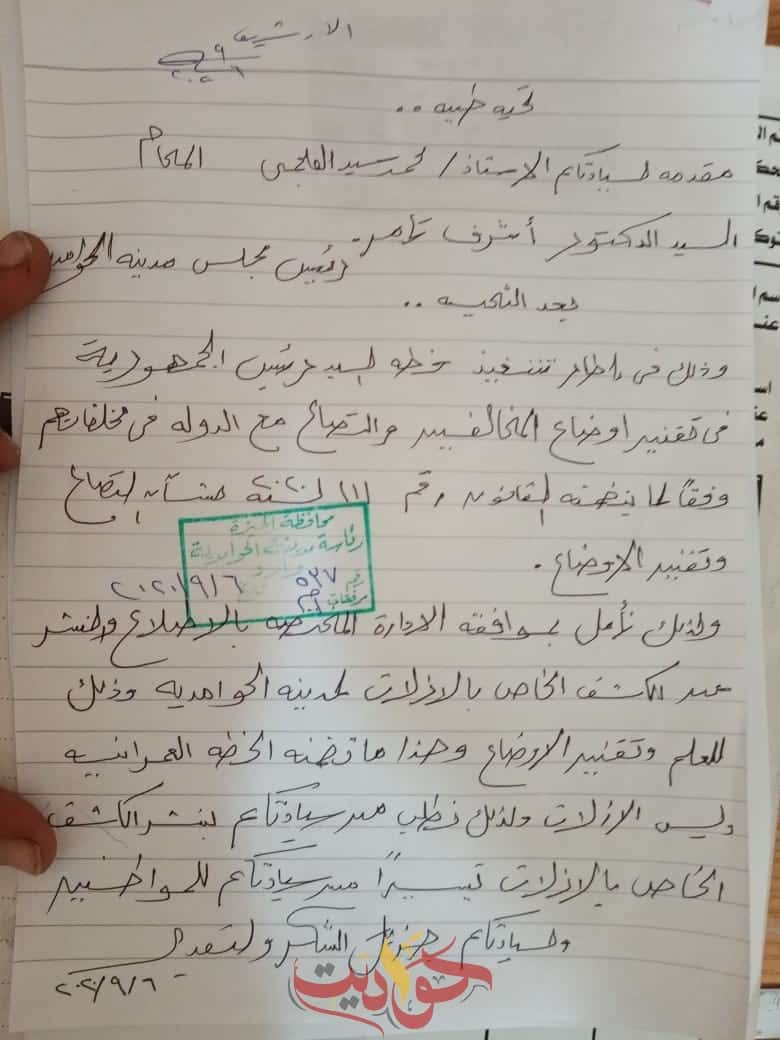 الارشيف
٩
٢٠٢٠
تحيه طيبه ..
مقدمه لسيادتكم الاستاذ/ محمد سيد الفلحجى المحام
السيد الدكتور أشرف تامر.
رئيس مجلس مدينه الحوامد
بعد التحيه ..
وذلك فى إطار تنفيذ خطه السيد رئيس الجمهورية
فى تقنين اوضاع المخالفين والتصالح مع الدوله فى مخلفاتهم
وفقاً لما ينظمه القانون رقم (١) لسنه ٢٠٢٠ بشآن التصالح
وتقنين الاوضاع.
محافظة الجيزة
رئاسة مدينة الحوامدية
وارد
رقم ٥٢٧ ٢٠٢٠/٩/٦
مرفقات
ولذلك نأمل بموافقه الادارة المختصه بالاطلاع والنشر
عن الكشف الخاص بالازلات لمدينه الحوامديه وذلك
للعلم وتقنين الاوضاع وهذا ما تضمنه الخطه العمرانيه
وليس الازلات ولذلك نطلب من سيادتكم بنشر الكشف
الخاص بالازلات تيسيراً من سيادتكم للمواطنين
ولسيادتكم جزيل الشكر والتقدير
٢٠٢٠/٩/٦
حوادیت